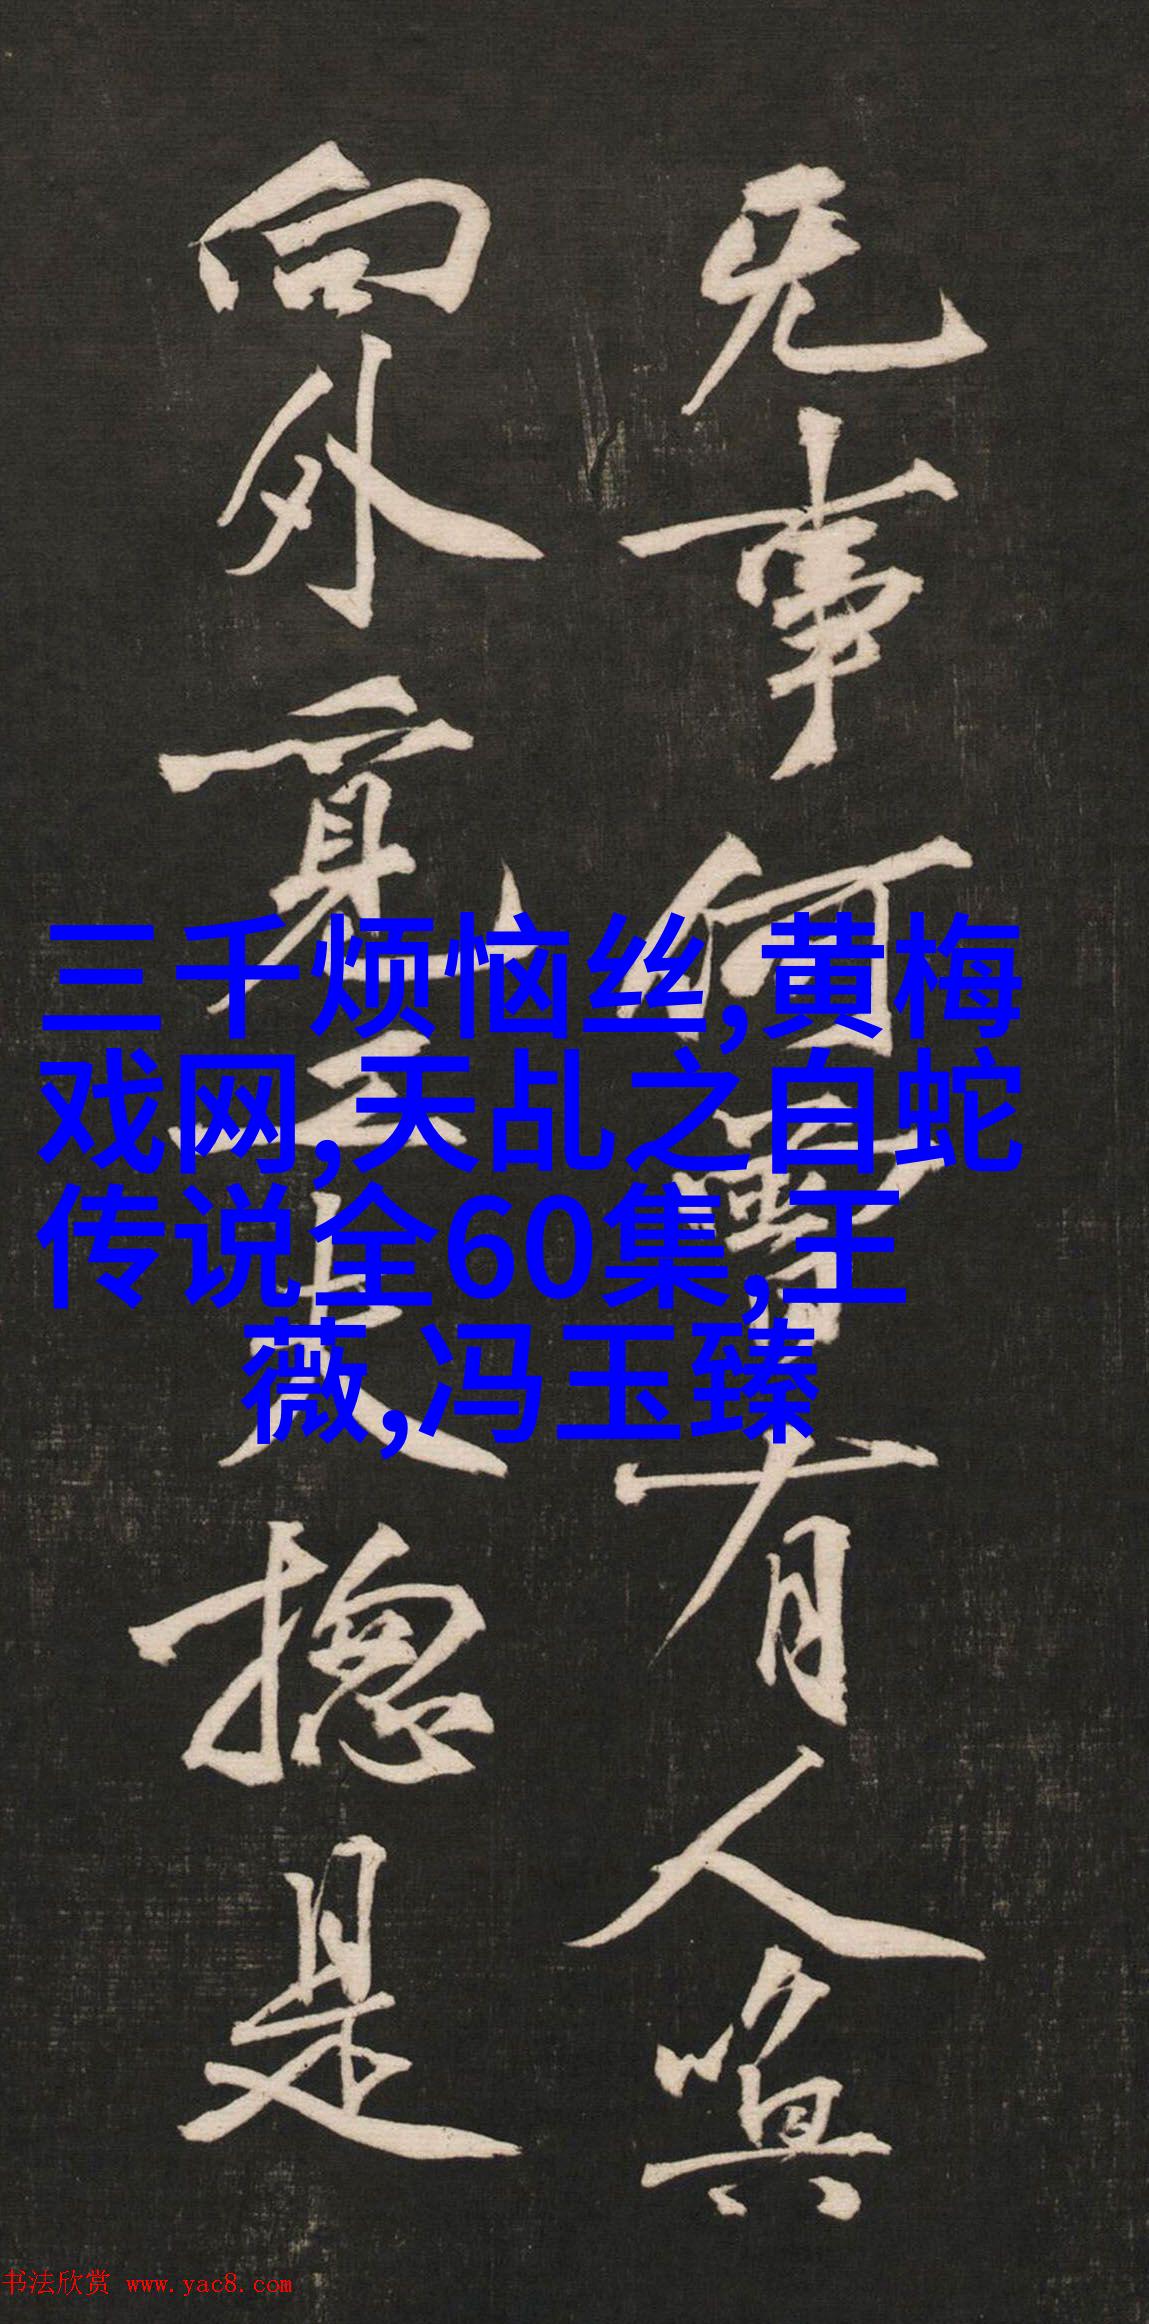 无事何有人
向外覓工夫揔是
三千烦恼丝,黄梅
戏网,天乩之白蛇
传说全60集,王
薇,冯玉臻
书法欣赏 www.yac8.com